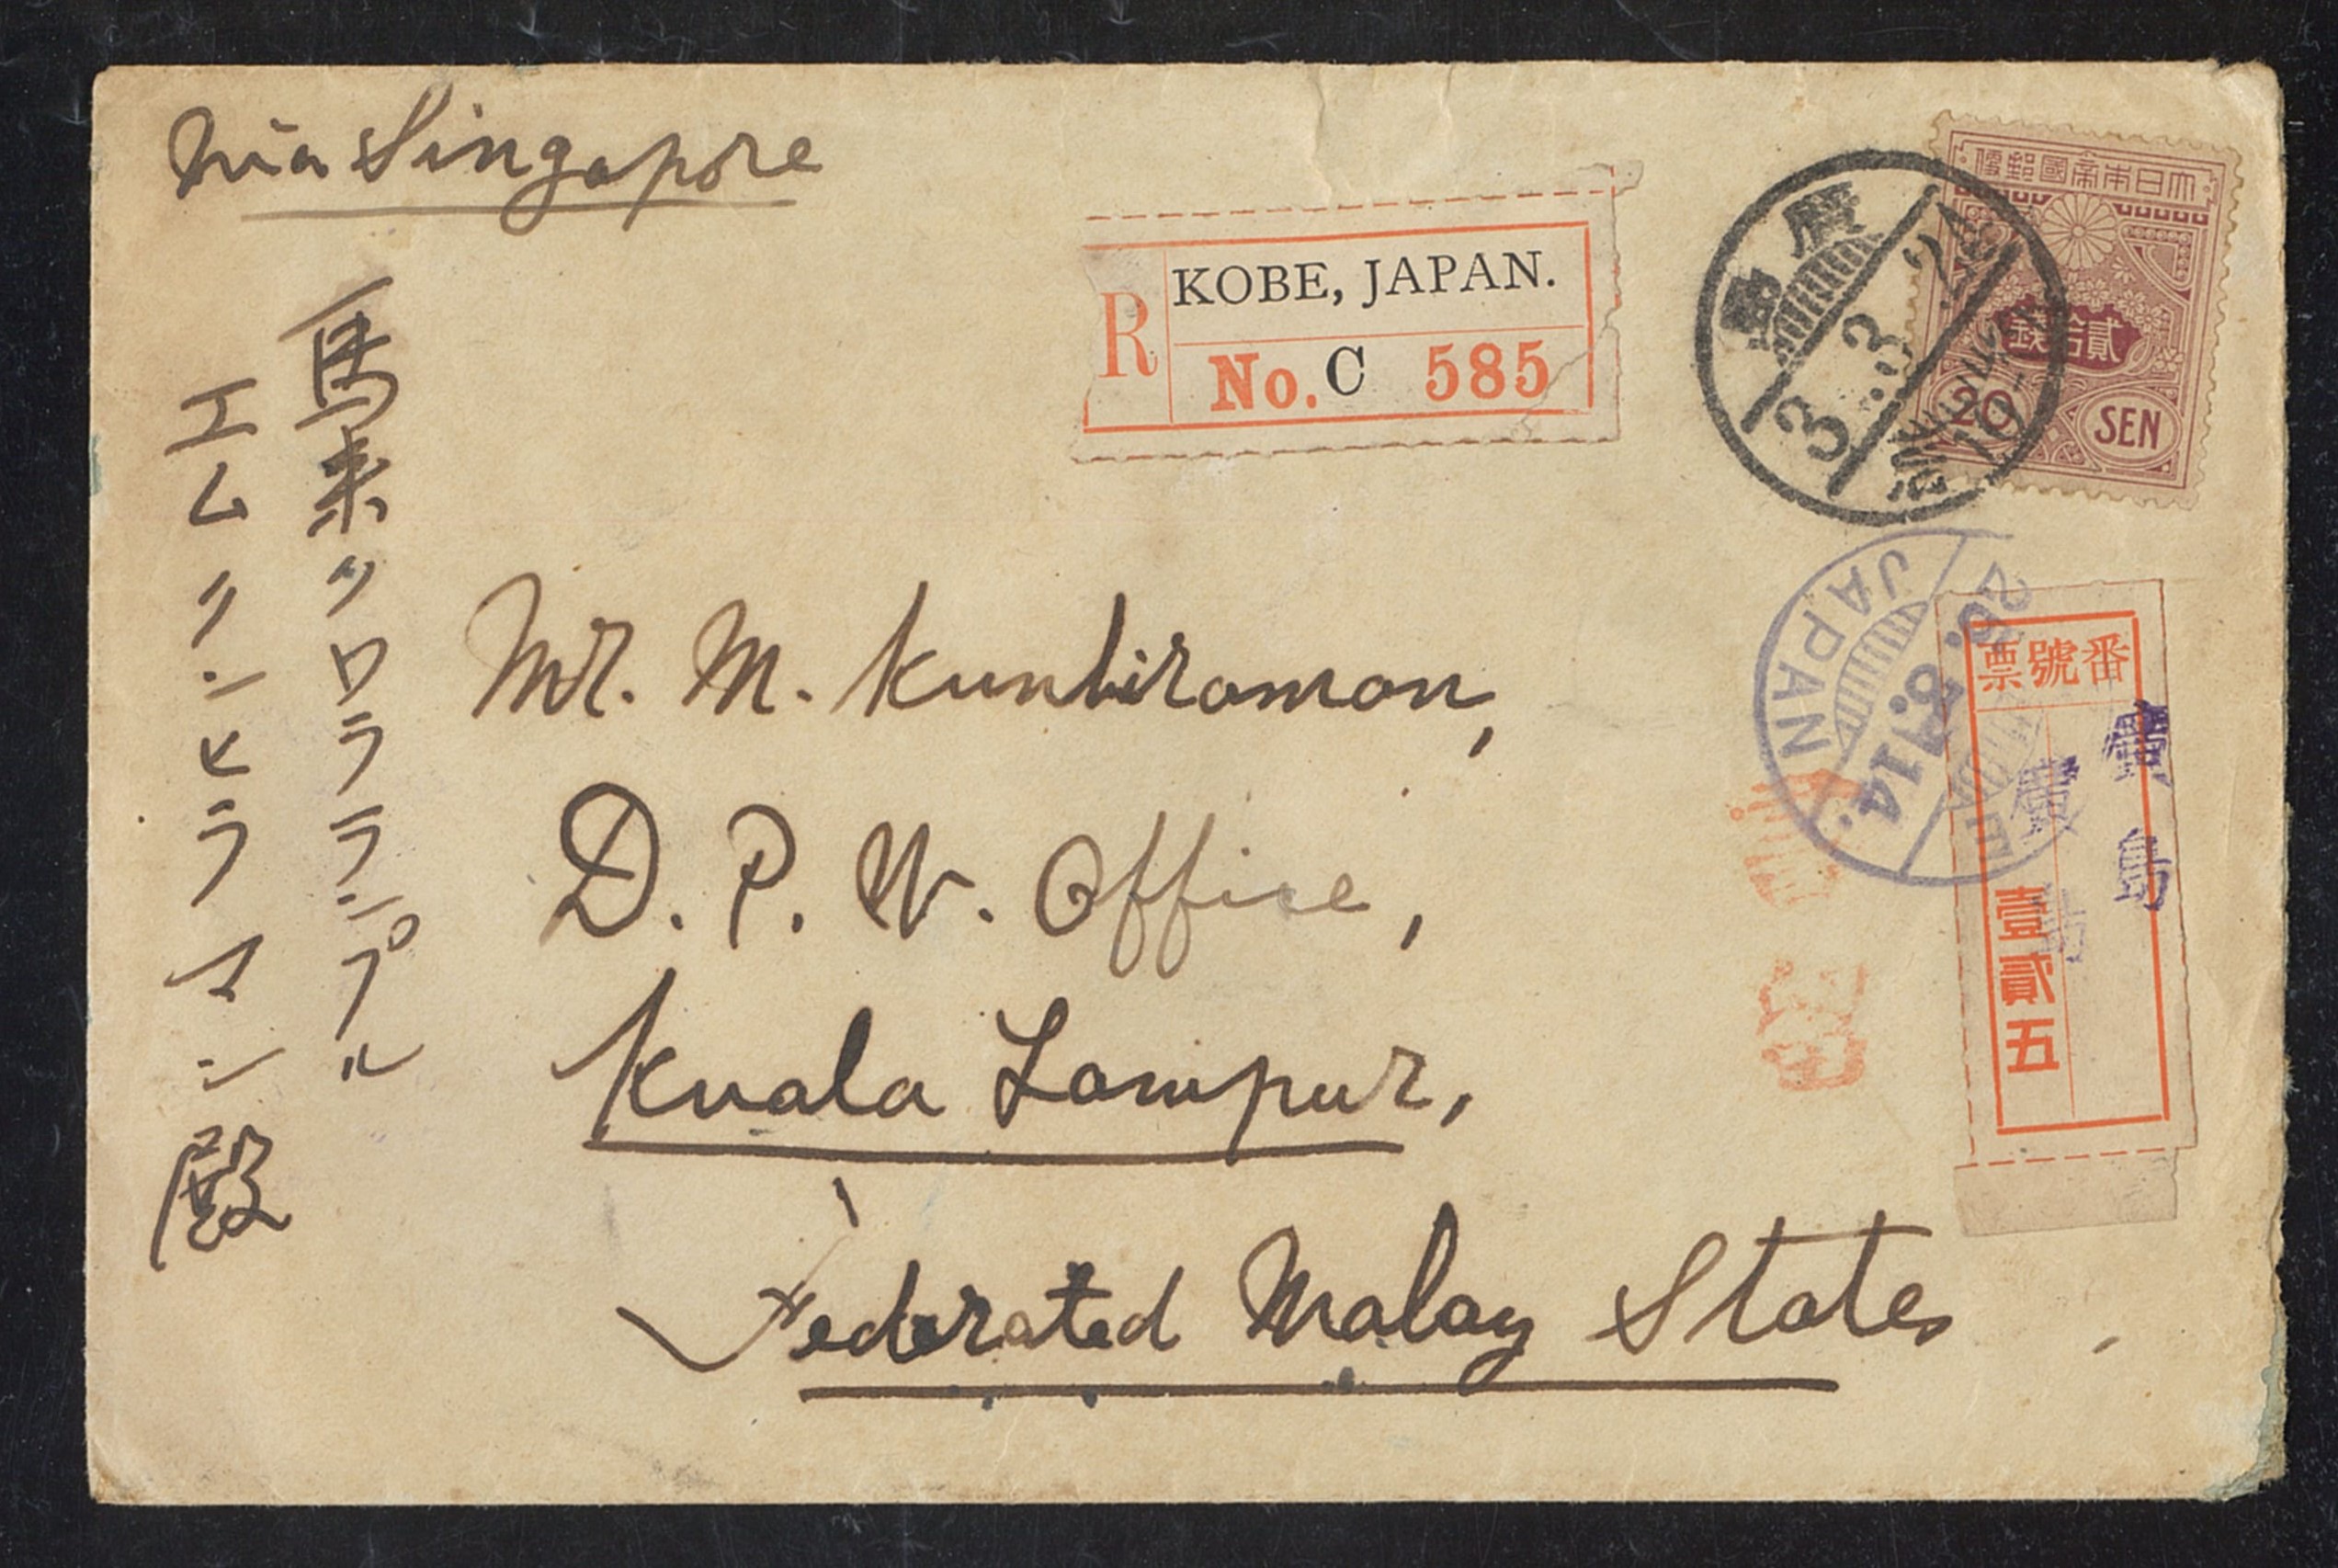 via Singapore
馬来クワラランプル
エムクンヒラマン殿
R
KOBE, JAPAN.
No. C 585
大日本帝國郵便
貳拾錢
20 SEN
廣島
3.3.24
JAPAN
番號票
廣島
廣島
壹貳五
Mr. M. Kunhiraman,
D. P. W. Office,
Kuala Lampur,
Federated Malay States